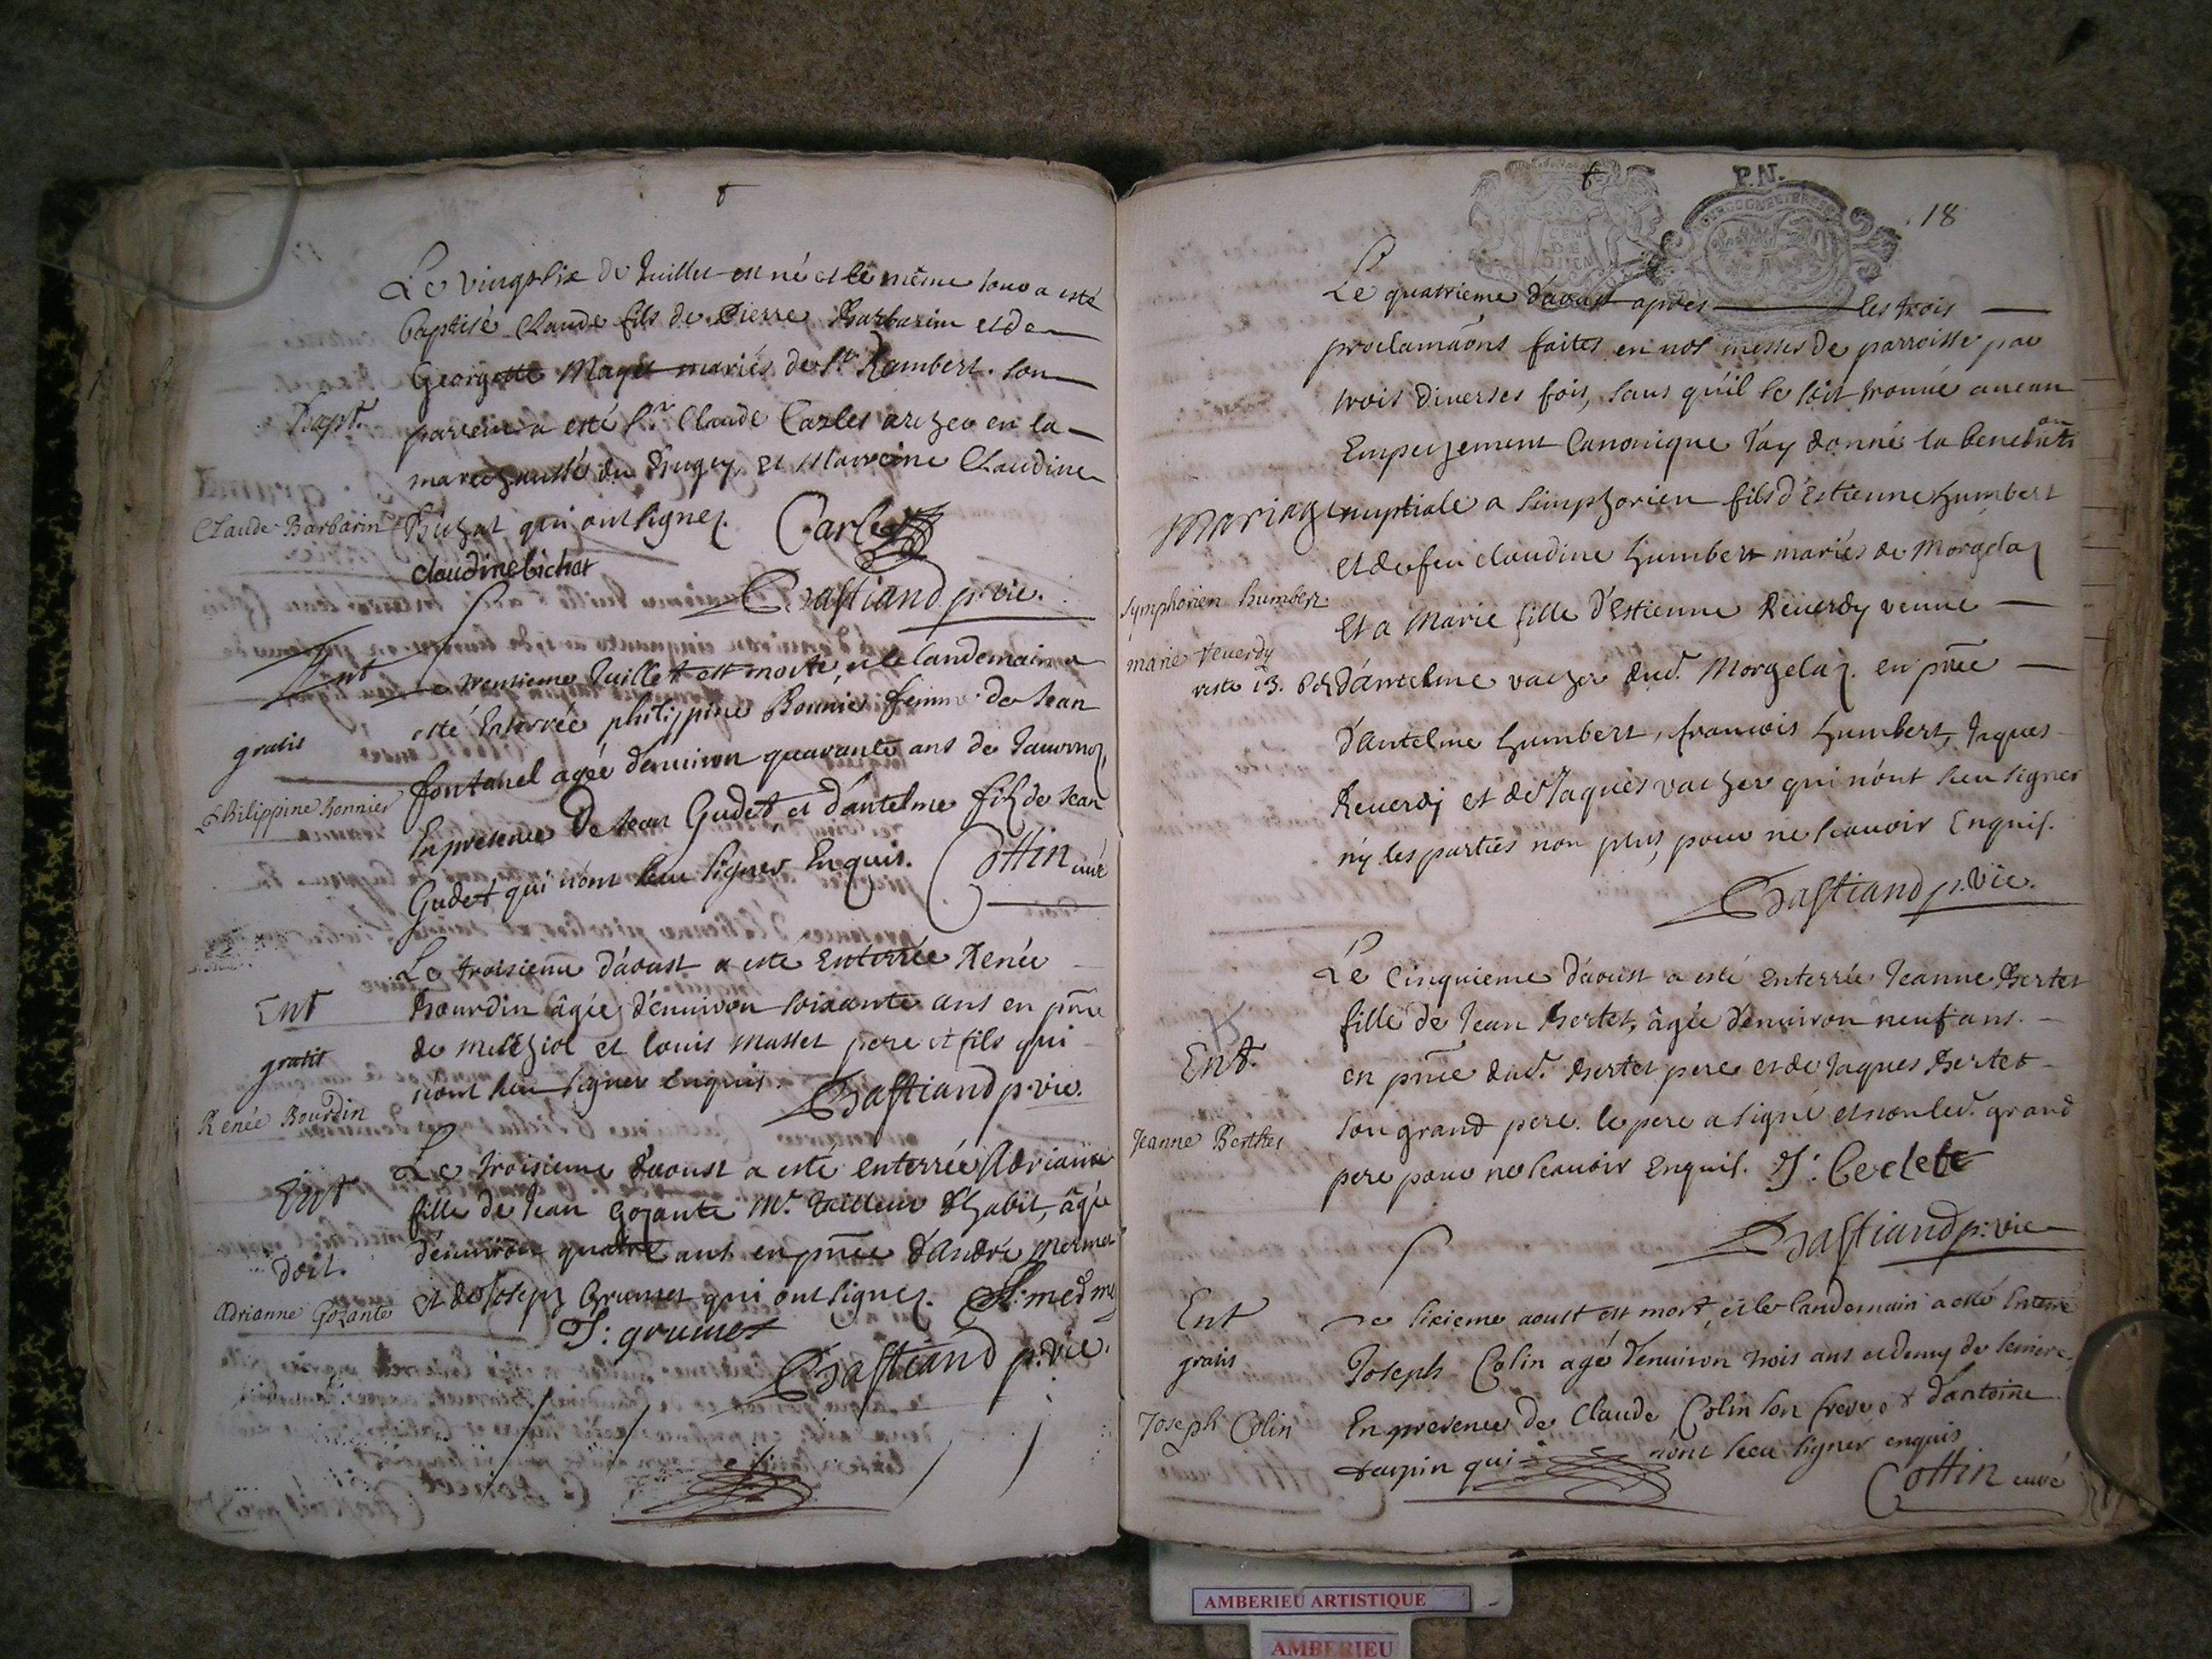 Le vingt six de Juillet est né et le même Jour a esté
baptisé Claude fils de Pierre Barbarin et de
Georgette Magit mariés de St Rambert. son
Bapt.
parrein a esté Sr. Claude Carles archer en la
marechaussé du Bugey et Marreine Claudine
Claude Barbarin
Bichat qui ont signez. Carles
claudine bichat
Bastiand p. vic.
Ent
Le trentieme Juillet est morte, et le landemain a
esté Enterrée philippine Bonnier femme de Jean
gratis
fontanel agée d'environ quarante ans de
Philippine Bonnier
En presence De Jean Gudet et d'antelme fils de Jean
Gudet qui n'ont sceu signer Enquis. Cottin curé
Le troisieme d'aoust a esté Enterrée Renée
Ent
Bourdin âgée d'environ soixante ans en pñce
de Melchiol et louis Masset pere et fils qui
gratis
n'ont sceu signer enquis. Bastiand p. vic.
Renée Bourdin
Le troisieme d'aoust a esté enterrée Adrianne
Ent
fille de Jean Gozante Me. Tailleur d'habit, âgée
d'environ quatre ans en pñce d'André Mermet
doit.
et de Joseph Grumet qui ont signez. A: mermet
Adrianne Gozante
J: grumet
Bastiand p. vic.
P.N.
18
Le quatrieme d'aoust apres les trois
proclamaõns faites en nos messes de parroisse par
trois diverses fois, sans qu'il se soit trouué aucun
Empeschement Canonique J'ay donné la benedicti on
Mariage
nuptiale a Simphorien fils d'Estienne humbert
et de feu claudine humbert mariés de Morgelaz
Symphorien humbert
Et a Marie fille d'Estienne Reuerdy veuue
marie reuerdy
reste 13. s
d'Antelme vacher dud. Morgelaz. en pñce
d'Antelme humbert, francois humbert, Jaques
Reuerdy et de Jaques vacher qui n'ont sceu signer
n'y les parties non plus, pour ne scauoir Enquis.
Bastiand p. vic.
Le cinquieme d'aoust a esté enterrée Jeanne Bertet
fille de Jean Bertet, âgée d'environ neuf ans.
Ent.
en pñce dud. Bertet pere et de Jaques Bertet
Jeanne Berthet
son grand pere. le pere a signé et non led. grand
pere pour ne scauoir Enquis.
Bastiand p. vic
Ent
Le sixieme aoust est mort, et le landemain a esté Enterré
gratis
Joseph Colin agé d'environ trois ans et demy de
Joseph Colin
En presence de Claude Colin son frere et d'antoine
taupin qui n'ont sceu signer enquis
Cottin curé
AMBERIEU ARTISTIQUE
AMBERIEU